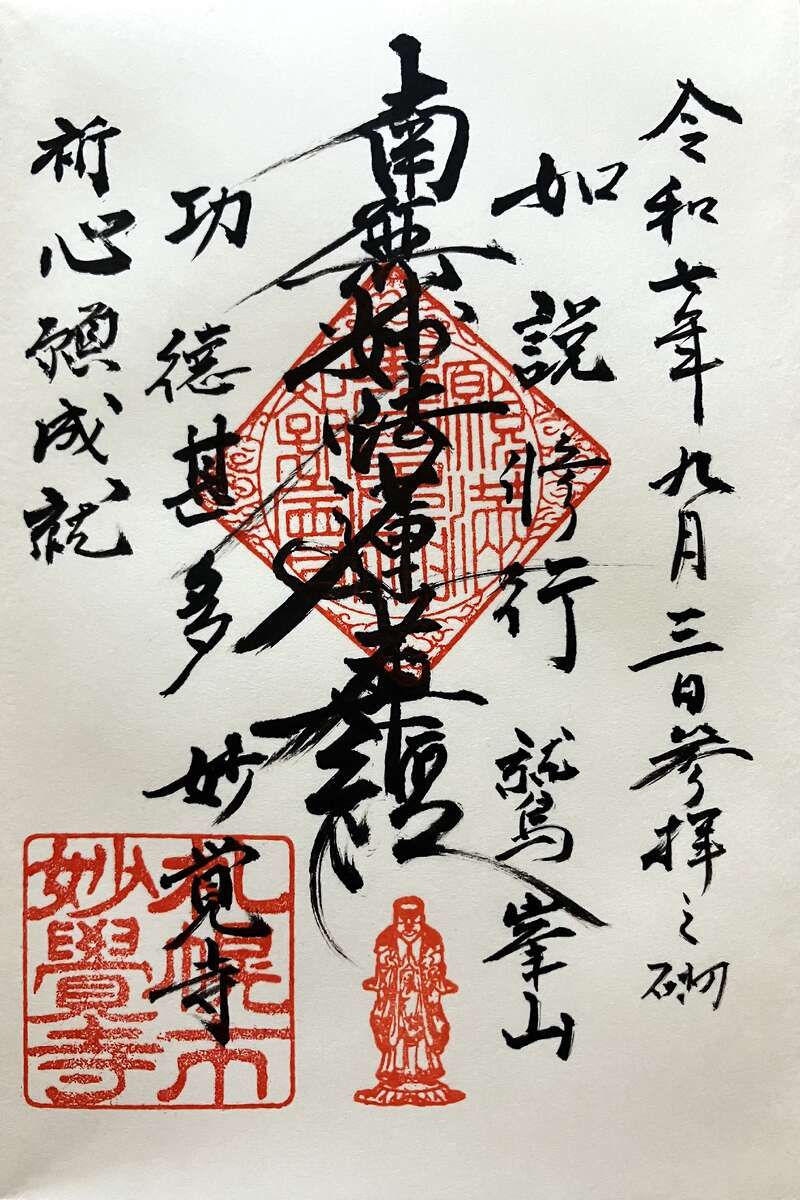 令和七年九月三日参拝之砌
如説修行
鷲峯山
南無妙法蓮華経
功徳甚多
妙覚寺
祈心願成就
札幌市
妙覺寺